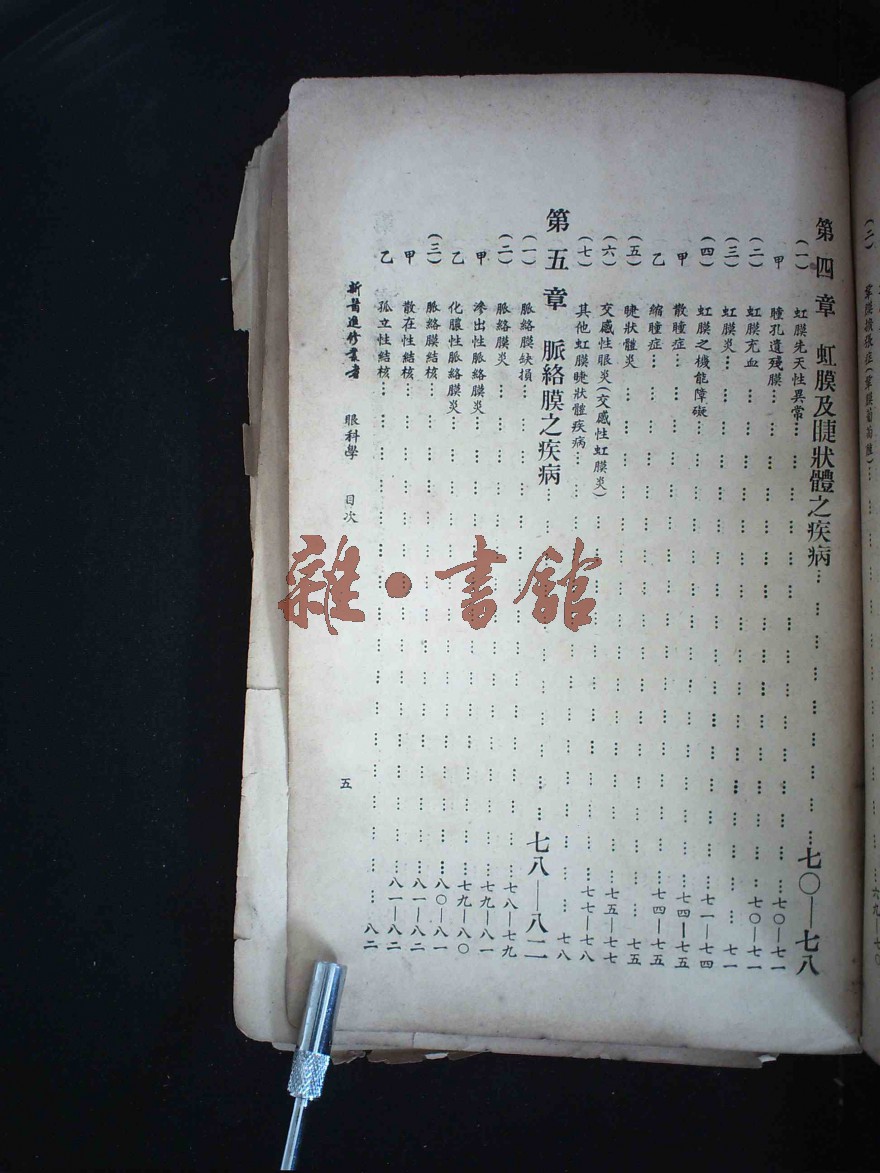 (二) 鞏膜擴張症(鞏膜葡萄腫)………六九—七〇
第四章 虹膜及睫狀體之疾病………七〇—七八
(一) 虹膜先天性異常………七〇—七一
甲 瞳孔遺殘膜………七〇—七一
(二) 虹膜充血………七一
(三) 虹膜炎………七一—七四
(四) 虹膜之機能障礙………七四—七五
甲 散瞳症………七四—七五
乙 縮瞳症………七五
(五) 睫狀體炎………七五—七七
(六) 交感性眼炎(交感性虹膜炎)………七七—七八
(七) 其他虹膜睫狀體疾病………七八
第五章 脈絡膜之疾病………七八—八二
(一) 脈絡膜缺損………七八—七九
(二) 脈絡膜炎………七九—八一
甲 滲出性脈絡膜炎………七九—八〇
乙 化膿性脈絡膜炎………八〇—八一
(三) 脈絡膜結核………八一—八二
甲 散在性結核………八一—八二
乙 孤立性結核………八二
新醫進修叢書 眼科學 目次 五
雜·書館